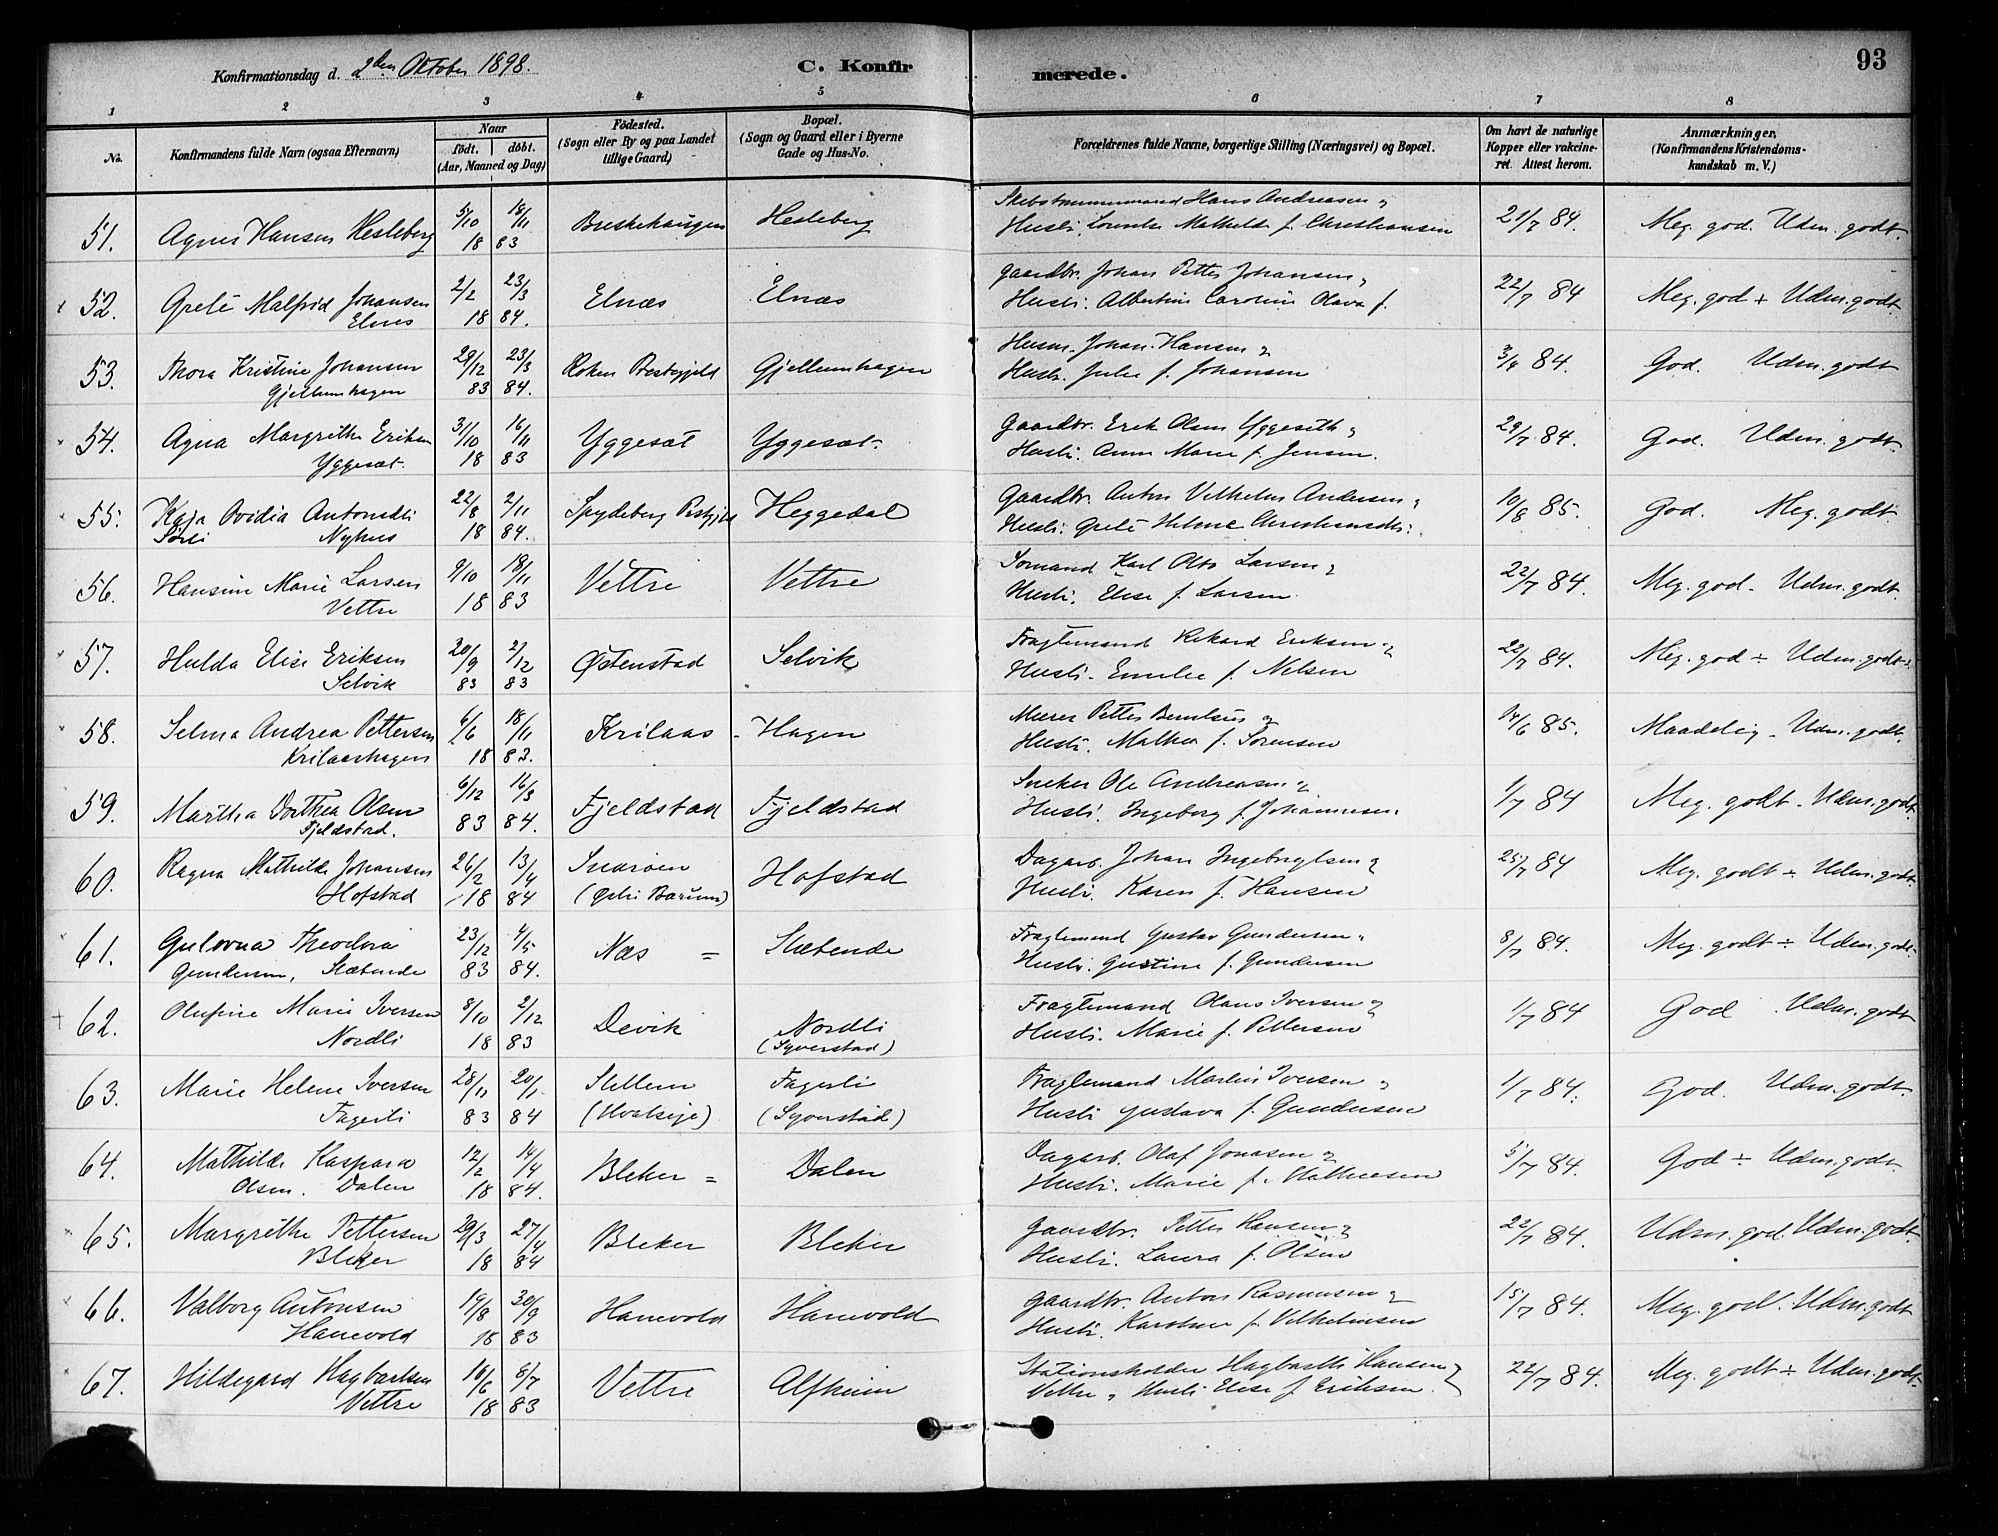 Konfirmationsdag d. 2den Oktober 1898.
C. Konfirmerede.
93
1 2 3 4 5 6 7 8
No. Konfirmandens fulde Navn (ogsaa Efternavn) Naar født. døbt. (Aar, Maaned og Dag) Fødested. (Sogn eller By og paa Landet tillige Gaard) Bopæl. (Sogn og Gaard eller i Byerne Gade og Hus-No. Forældrenes fulde Navne, borgerlige Stilling (Næringsvei) og Bopæl. Om havt de naturlige Kopper eller vakcineret. Attest herom. Anmærkninger. (Konfirmandens Kristendomskundskab m. V.)
51. Agnes Hansen Hesleberg 5/10 18/11 Hesleberg Hans Andreasen 21/7 84. Meg. god. Udm. godt.
18 83 Hustr. Mathilde f. Christiansen
52. Grete Malfrid Johansen 2/2 23/3 Elnæs Elnæs Gaardbr. Johan Petter Johansen 22/7 84 Meg. god ÷ Udm. godt.
Elnes 18 84. Hustr. Albertine Caroline Olava f.
53. Thora Kristine Johansen 29/12 23/3 Røken Prestegjeld Gjellumhagen Husm. Johan Hansen 3/4 84. God. Udm. godt
Gjellumhagen 83 84. Hustr. Julie f. Johansen
54. Agna Margrithe Eriksen 31/10 16/11 Yggesæt Yggesæt Gaardbr. Erik Olsen Yggeseth 29/7 84. God. Udm. godt.
Yggesæt. 18 83 Hustr. Anne Marie f. Jensen.
55. Kaja Ovidia Antonsdtr. 22/8 2/11 Spydeberg Prstgj. Heggedal Gaardbr. Anton Vilhelm Andersen 10/8 85. God. Meg. godt.
Nyhus 18 84. Hustr. Grete Helene
56. Hansine Marie Larsen 9/10 18/11 Vettre Vettre Sømand Karl Otto Larsen 22/7 84. Meg. god. Udm. godt.
Vettre 18 83 Hustr. Elise f. Larsen
57. Hulda Elise Eriksen 20/9 2/12 Østenstad Selvik Fragtemand Rikard Eriksen 22/7 84. Meg. god ÷ Udm. godt.
Selvik 83 83 Hustr. Emilie f. Nelsen
58. Selma Andrea Pettersen 6/6 18/11 Krilaas Hagen Murer Petter 14/6 85. Maadelig. Udm. godt.
Krilaashagen 18 83. Hustr. Mathea f. Sørensen
59. Martha Dorthea Olsen 6/12 16/3 Fjeldstad Fjeldstad Sneker Ole Andreasen 1/7 84 Meg. godt. Udm. godt
Fjeldstad. 83 84. Hustr. Ingeborg f. Johannesen
60. Ragna Mathilde Johansen 26/2 13/4 Snarøen Hofstad Dagarb. Johan Ingebrigtsen 25/7 84 Meg. godt ÷ Udm. godt.
Hofstad 18 84 (Østre Bærum) Hustr. Karen f. Hansen
61. Gulovna Theodora 23/12 4/5 Næs = Slæbende Fragtemand Gustav Gundersen 8/7 84. Meg. godt ÷ Udm. godt.
Gundersen, Slæbende 83 84. Hustr. Gustine f. Gundersen
62. Olufine Marie Iversen 8/10 2/12 Devik Nordli Fragtemand Olaus Iversen 1/7 84 God Udm. godt
Nordli 18 83 (Syverstad) Hustr. Marie f. Pettersen
63. Marie Helene Iversen 28/11 20/1 Fagerli Fragtemand Martin Iversen 1/7 84. God. Udm. godt.
Fagerli 83 84 (Syverstad) Hustr. Gustava f. Gundersen
64. Mathilde Kaspara 12/2 14/4 Bleker = Dalen Dagarb. Olaf Jonasen 5/7 84. God ÷ Udm. godt.
Olsen. Dalen 18 84. Hustr. Marie f. Mathiesen
65. Margrithe Pettersen 29/3 27/4 Bleker Bleker Gaardbr. Petter Hansen 22/7 84. Udm. god. Udm. godt.
Bleker 18 84 Hustr. Laura f. Olsen
66. Valborg Antonsen 19/8 30/9 Hanevold Hanevold Gaardbr. Anton Rasmussen 15/7 84. Meg. god. Udm. godt
Hanevold 18 83 Hustr. Karoline f. Vilhelmsen
67. Hildegard Hagbartsen 16/6 8/7 Vettre Alfheim Stationsholder Hagbarth Hansen 22/7 84. Meg. godt ÷ Udm. godt.
Vettre 18 83 Vettre, Hustr. Elise f. Eriksen.